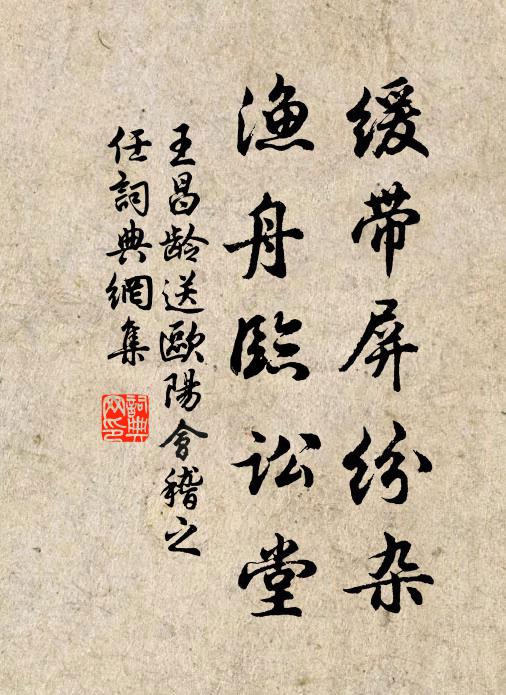 缓带屏纷杂
渔舟临讼堂
王昌龄送欧阳会稽之
任词典網集
詞典
网印